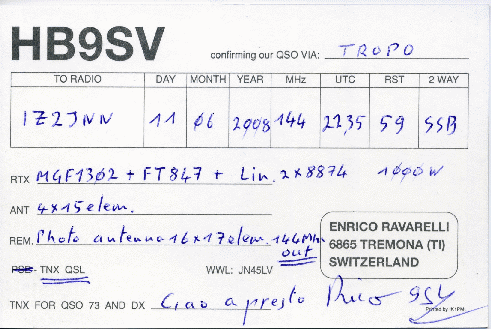 HB9SV
confirming our QSO VIA: TROPO
TO RADIO DAY MONTH YEAR MHz UTC RST 2 WAY
IZ2JNN 11 06 2008 144 2235 59 SSB
RTX MGF1302 + FT847 + Lin. 2x8874 1000W
ANT 4x15 elem.
REM. Photo antenna 16x17 elem. 144MHz
out
ENRICO RAVARELLI
6865 TREMONA (TI)
SWITZERLAND
PSE TNX QSL WWL: JN45LV
TNX FOR QSO 73 AND DX Ciao a presto Rico 9SV
Printed by IK1PML